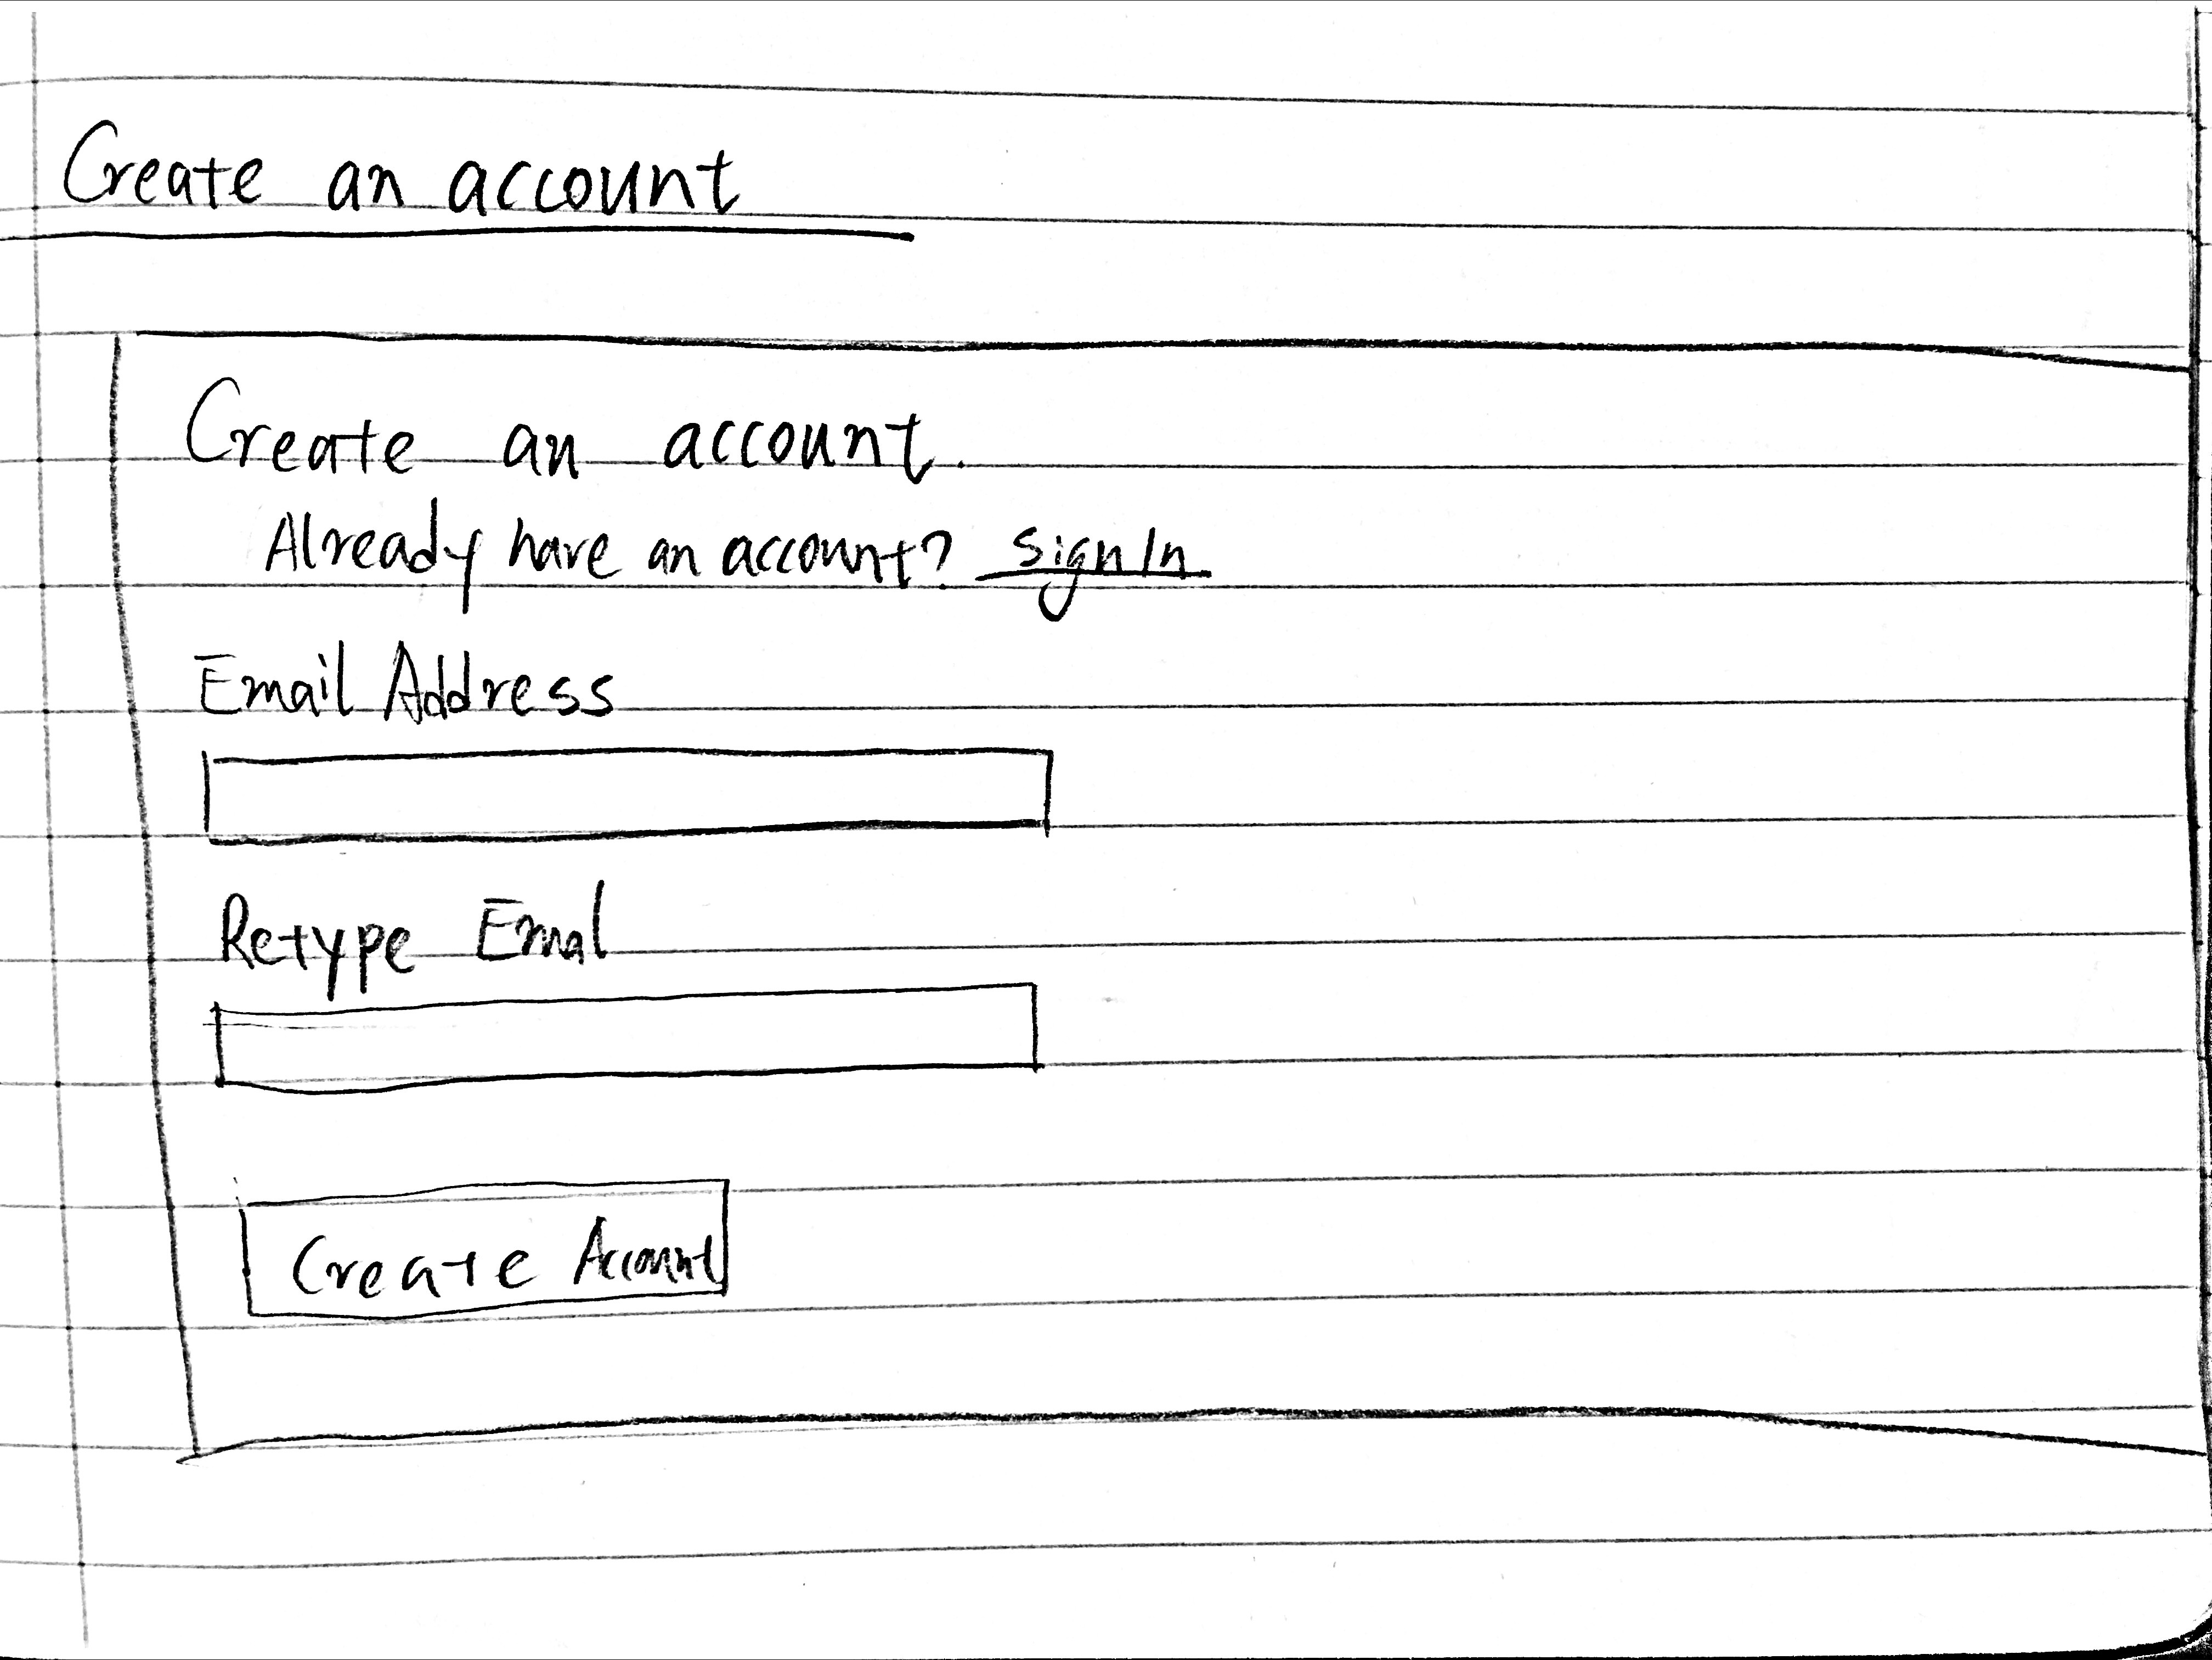 Create an account
Create an account.
Already have an account? sign In
Email Address
Retype Emal
Create Account